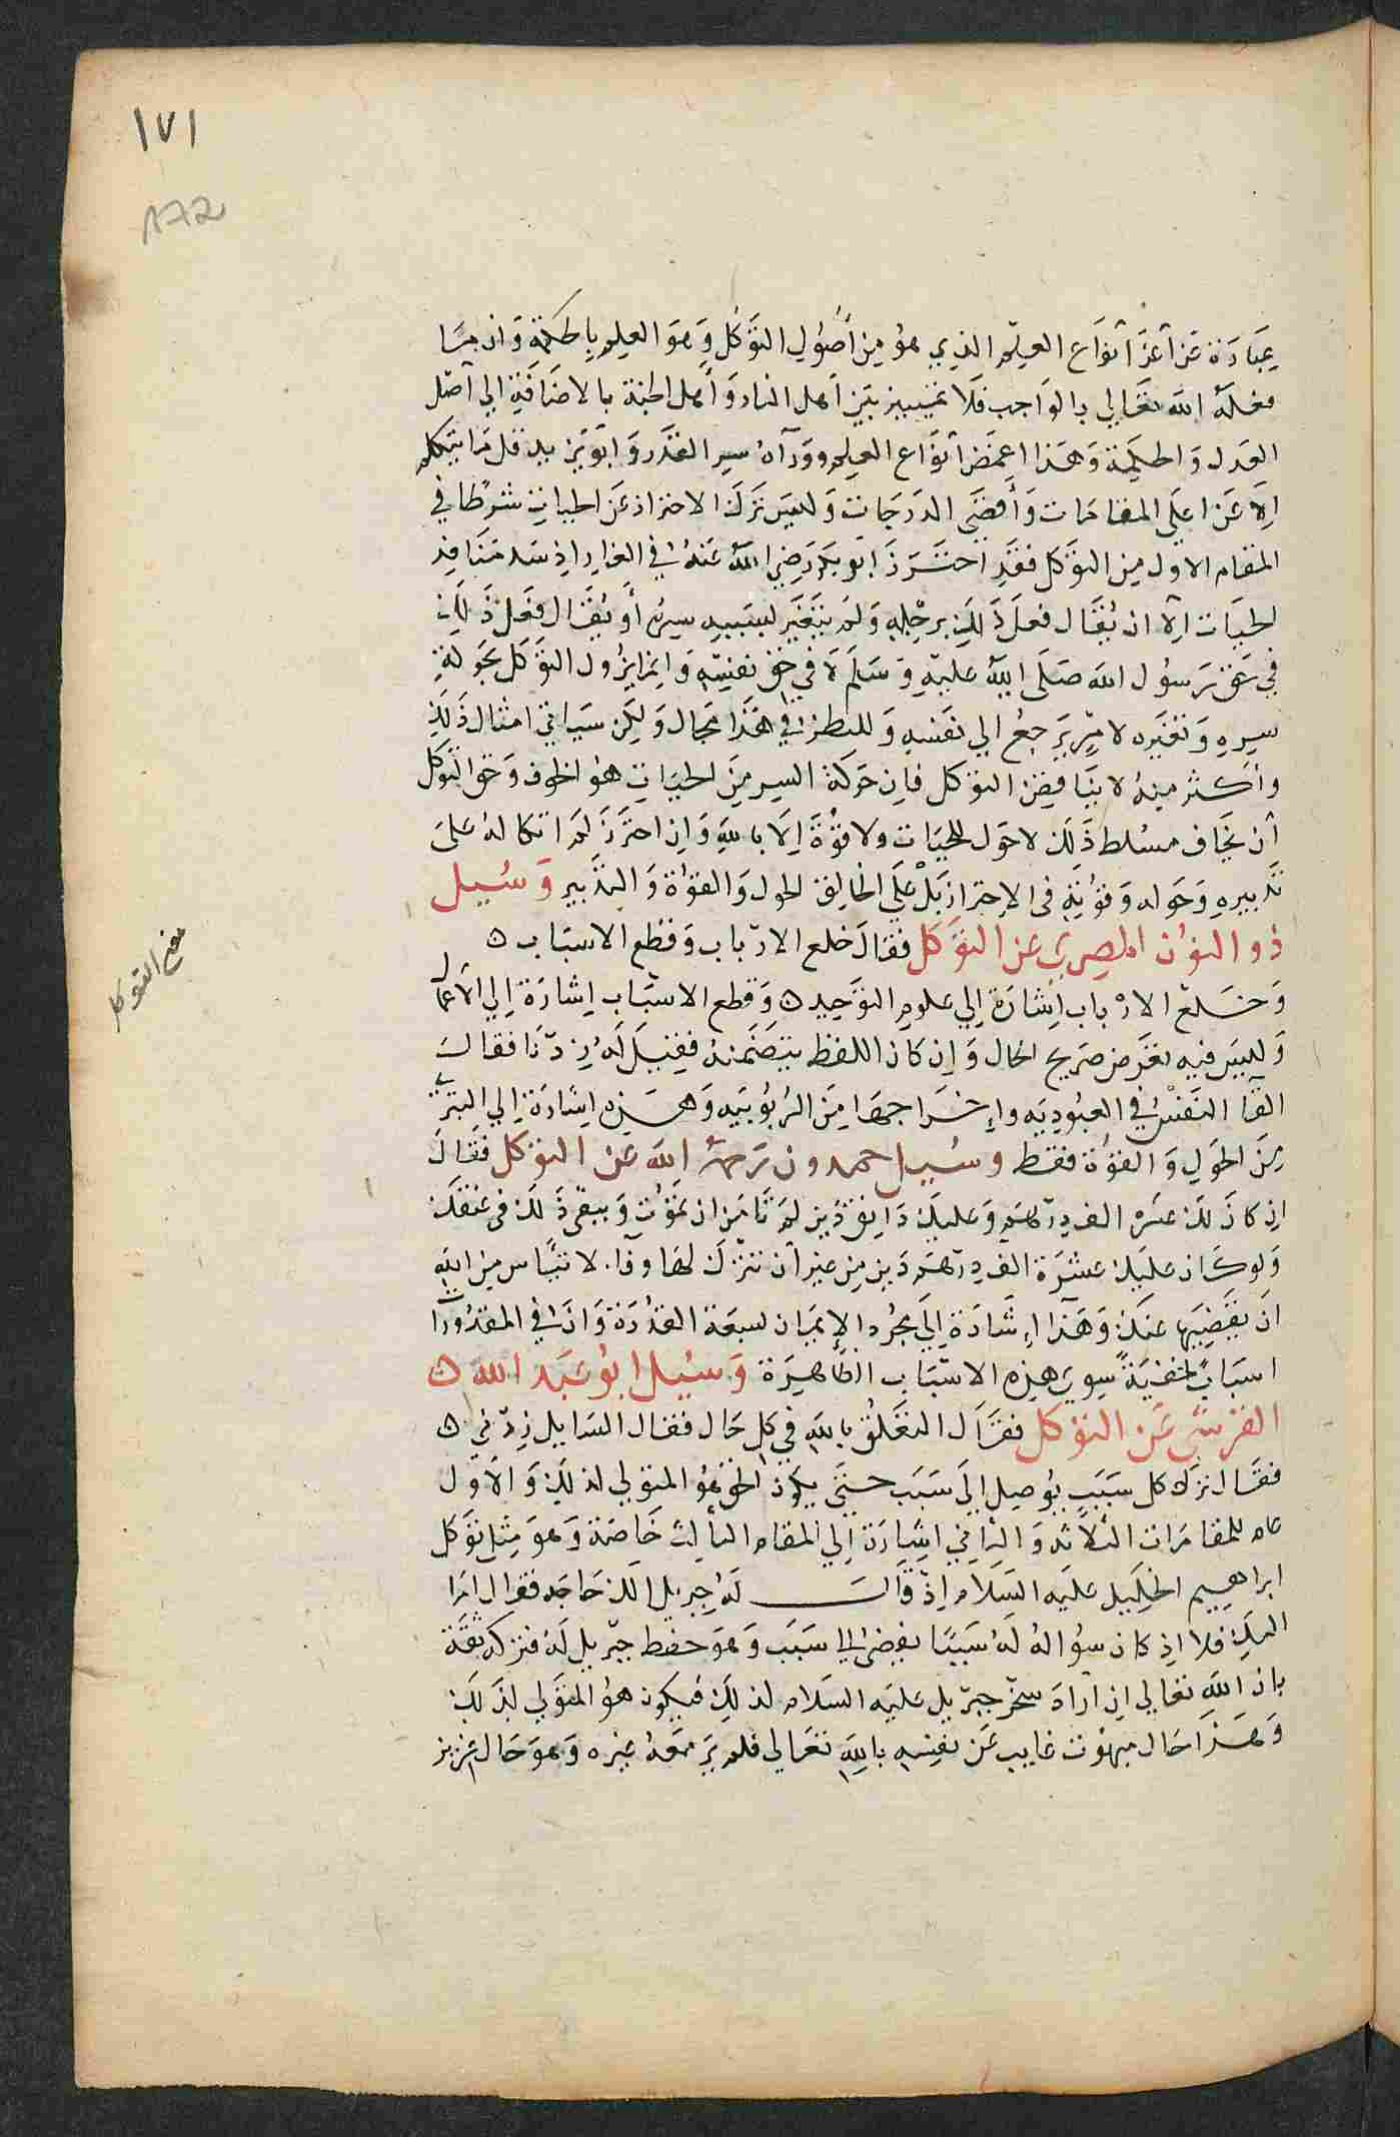 ١٧١
172
عبارة عن اعز انواع العلم الذي هو من أصول التوكل وهو العلم بالحكمة وان ما
فعله الله تعالى بالواجب فلا تمييز بين اهل النار وأهل الجنة بالاضافة الي اصل
العدل والحكمة وهذا اغمض انواع العلم ووراه سر القدر وابو يزيد قل ما يتكلم
الا عن اعلى المقامات وأقصى الدرجات وليس ترك الاحتراز عن الحيات شرطا في
المقام الاول من التوكل فقد احترز ابو بكر رضي الله عنه في الغار اذ سد منافذ
الحيات الا ان يقال فعل ذلك برجله ولم يتغير بسببه سره أو يقال فعل ذلك
في حق رسول الله صلى الله عليه وسلم لا في حق نفسه وانما يزول التوكل بحركة
سره وتغيره لامر يرجع الي نفسه وللنظر في هذا مجال ولكن سياتي امثال ذلك
وأكثر منه لا يناقض التوكل فان حركة السر من الحيات هو الخوف وحق المتوكل
أن يخاف مسلط ذلك لا حول للحيات ولا قوة الا بالله وان احترز لم اتكاله على
تدبيره وحوله وقوته في الاحتراز بل على الخالق الحول والقوة والتدبير وسئيل
ذو النون المصري عن التوكل فقال خلع الارباب وقطع الاسباب ه
وخلع الارباب إشارة إلي علوم التوحيد ه وقطع الاسباب إشارة إلي الاعمال
وليس فيه تعرض صريح الحال وان كان اللفظ يتضمنه فقيل له زدنا فقال
القا النفس في العبوديه وإخراجها من الربوبيه وهذه اشارة إلي التبري
من الحول والقوة فقط وسئيل حمدون رحمه الله عن التوكل فقال
ان كان لك عشره الف درهم وعليك دانق دين لم تامن ان تموت ويبقى ذلك في عنقك
ولو كان عليك عشرة الف درهم دين من غير أن تترك لها وفا لا تياس من الله
ان يقضيها عنك وهذا إشارة إلى مجرد الإيمان بسعة القدرة وان في المقدورات
اسبابا خفية سوى هذه الاسباب الظاهرة وسئيل ابو عبد الله ه
القرشي عن التوكل فقال التعلق بالله في كل حال فقال السايل زدني ه
فقال ترك كل سبب يوصل إلى سبب حتى يكون الحق هو المتولي لذلك والأول
عام للمقامات الثلاثه والثاني اشارة إلي المقام الثالث خاصة وهو مثل توكل
ابراهيم الخليل عليه السلام إذ قال له جبريل الك حاجه فقال اما
اليك فلا اذ كان سؤاله له سببا يفضي الي سبب وهو حفظ جبريل له فتركه ثقة
بان الله تعالي ان اراد سخر جبريل عليه السلام لذلك فيكون هو المتولي لذلك
وهذا حال مبهوت غايب عن نفسه بالله تعالى فلم ير معه غيره وهو حال عزيز
التوكل